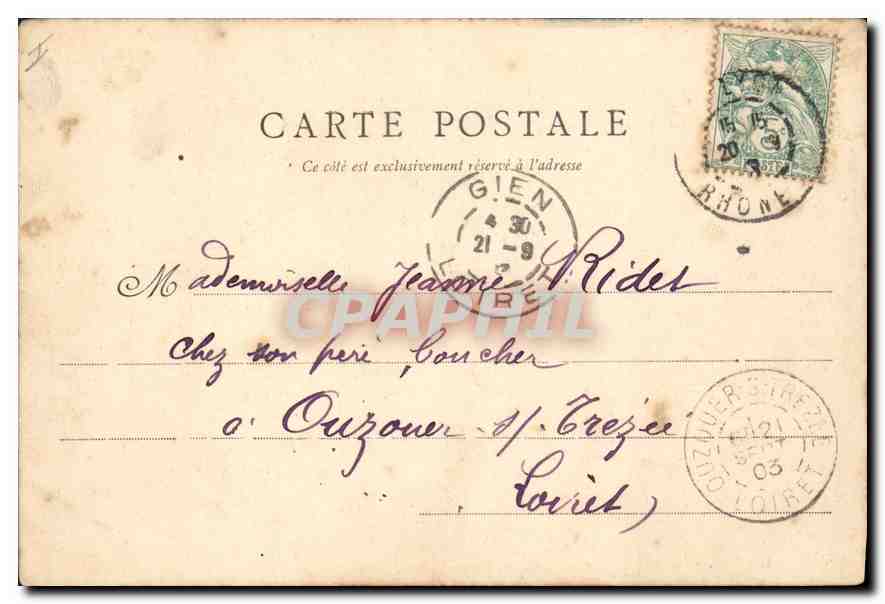 CARTE POSTALE
Ce côté est exclusivement réservé à l'adresse
GIEN
4 30
21 - 9
15
20 9
RHONE
5
POSTES
Mademoiselle Jeanne Ridet
chez son père, boucher
à Ouzouer s/ Trezée
Loiret
OUZOUER-S-TREZEE
21
SEPT
03
LOIRET
CPAPHIL